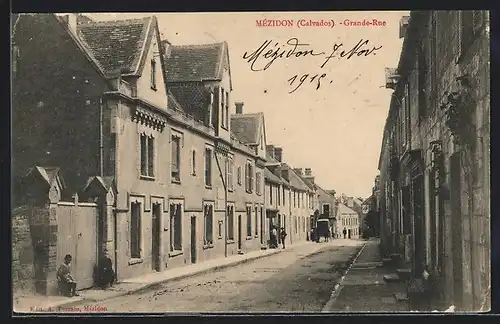 MÉZIDON (Calvados) - Grande-Rue
Mézidon 7 Nov.
1915
Edit. A. Mézidon